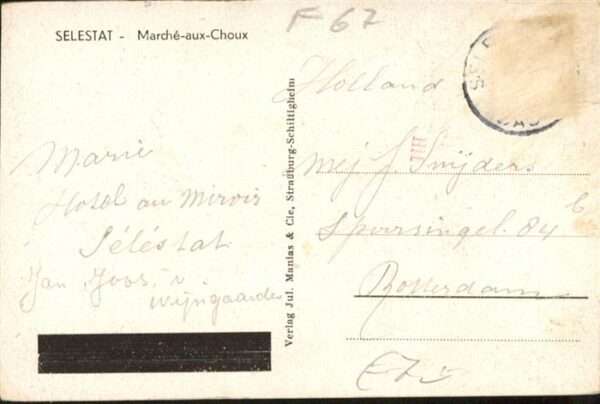 F 67
SELESTAT - Marché-aux-Choux
Holland
Marie
Hotel au Miroir
Séléstat
Jan Joos. v.
Wijngaarden
Verlag Jul. Manias & Cie, Straßburg-Schiltigheim
Mej. J. Snijders
Spoorsingel. 84 b
Rotterdam